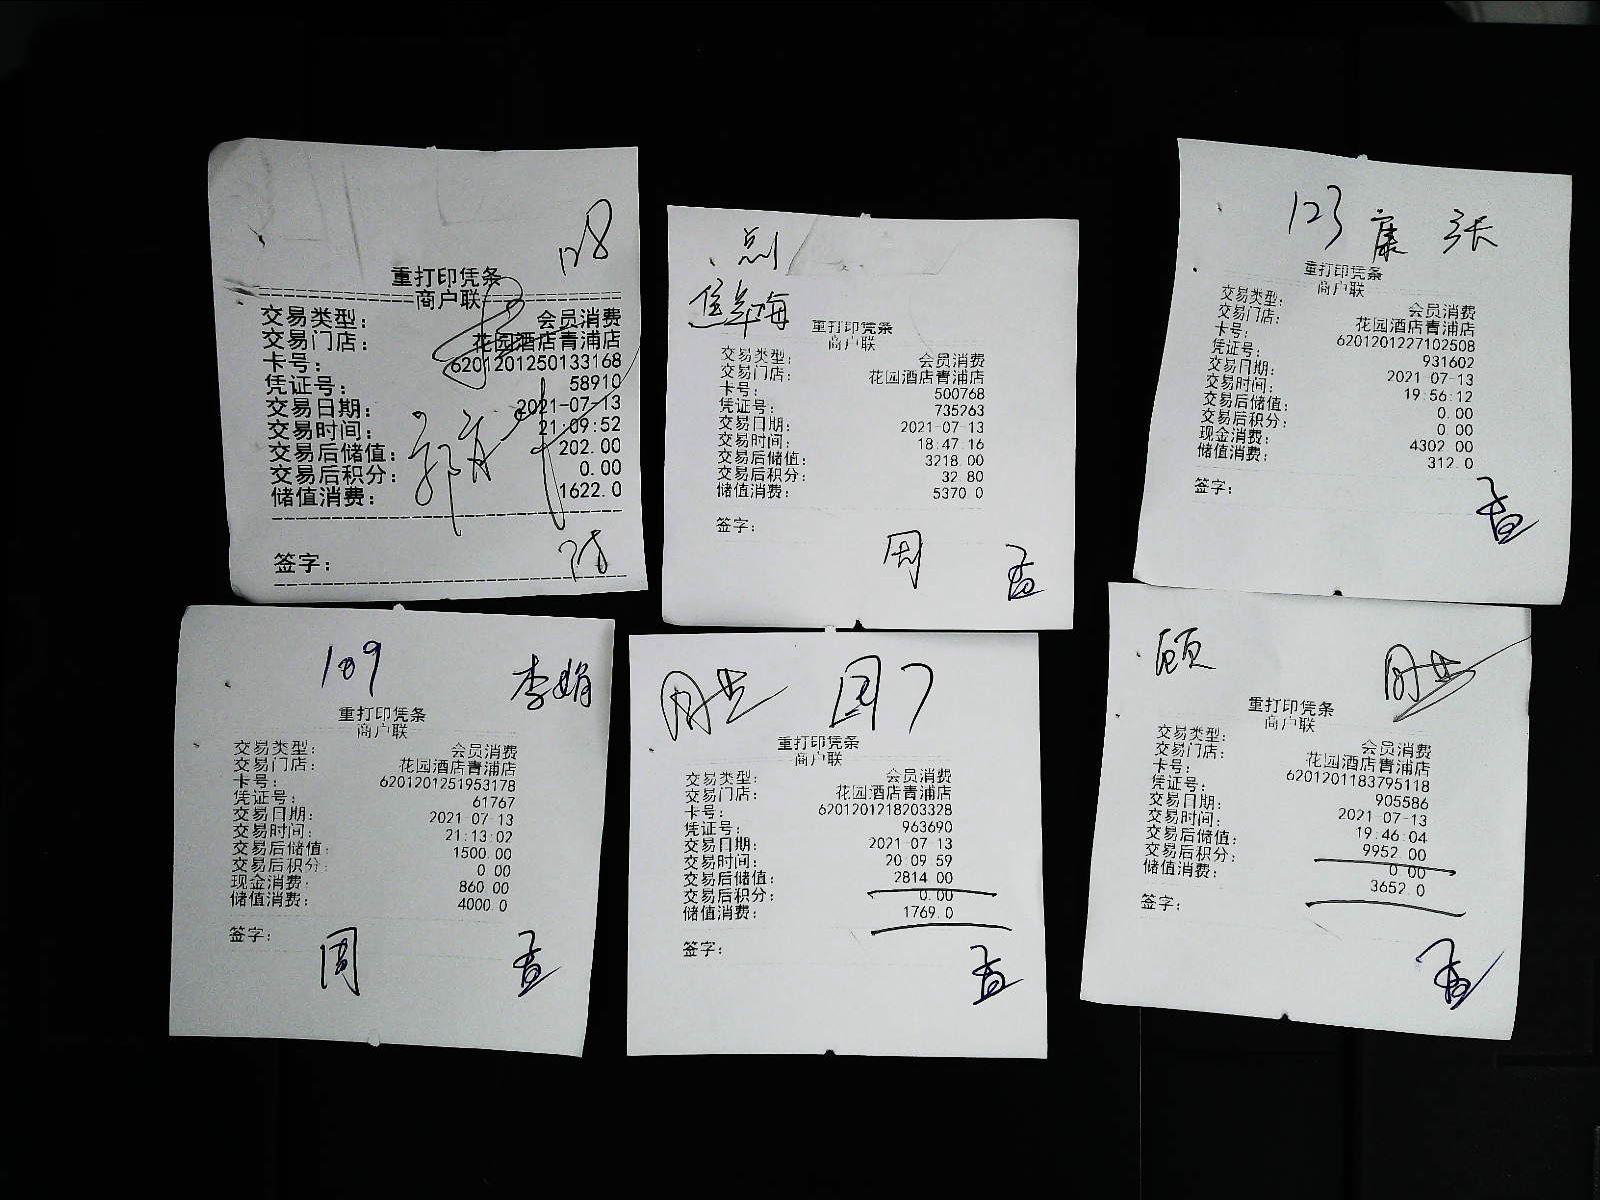 128
重打印凭条
商户联
交易类型: 会员消费
交易门店: 花园酒店青浦店
卡号: 6201201250133168
凭证号: 58910
交易日期: 2021-07-13
交易时间: 21:09:52
交易后储值: 202.00
交易后积分: 0.00
储值消费: 1622.0
签字:
重打印凭条
商户联
交易类型: 会员消费
交易门店: 花园酒店青浦店
卡号: 500768
凭证号: 735263
交易日期: 2021-07-13
交易时间: 18:47:16
交易后储值: 3218.00
交易后积分: 32.80
储值消费: 5370.0
签字:
周 孟
123 康 张
重打印凭条
商户联
交易类型: 会员消费
交易门店: 花园酒店青浦店
卡号: 6201201227102508
凭证号: 931602
交易日期: 2021-07-13
交易时间: 19:56:12
交易后储值: 0.00
交易后积分: 0.00
现金消费: 4302.00
储值消费: 312.0
签字:
孟
109 李娟
重打印凭条
商户联
交易类型: 会员消费
交易门店: 花园酒店青浦店
卡号: 6201201251953178
凭证号: 61767
交易日期: 2021-07-13
交易时间: 21:13:02
交易后储值: 1500.00
交易后积分: 0.00
现金消费: 860.00
储值消费: 4000.0
签字:
周 孟
重打印凭条
商户联
交易类型: 会员消费
交易门店: 花园酒店青浦店
卡号: 6201201218203328
凭证号: 963690
交易日期: 2021-07-13
交易时间: 20:09:59
交易后储值: 2814.00
交易后积分: 0.00
储值消费: 1769.0
签字:
孟
顾
重打印凭条
商户联
交易类型: 会员消费
交易门店: 花园酒店青浦店
卡号: 6201201183795118
凭证号: 905586
交易日期: 2021-07-13
交易时间: 19:46:04
交易后储值: 9952.00
交易后积分: 0.00
储值消费: 3652.0
签字:
孟